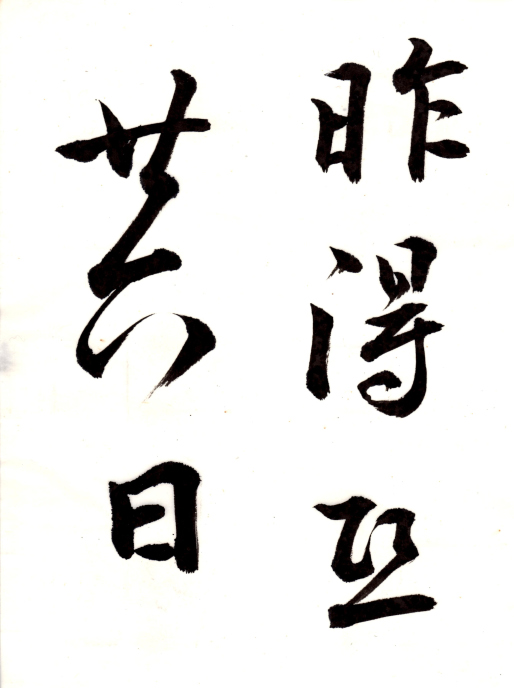 昨得熙
廿六日